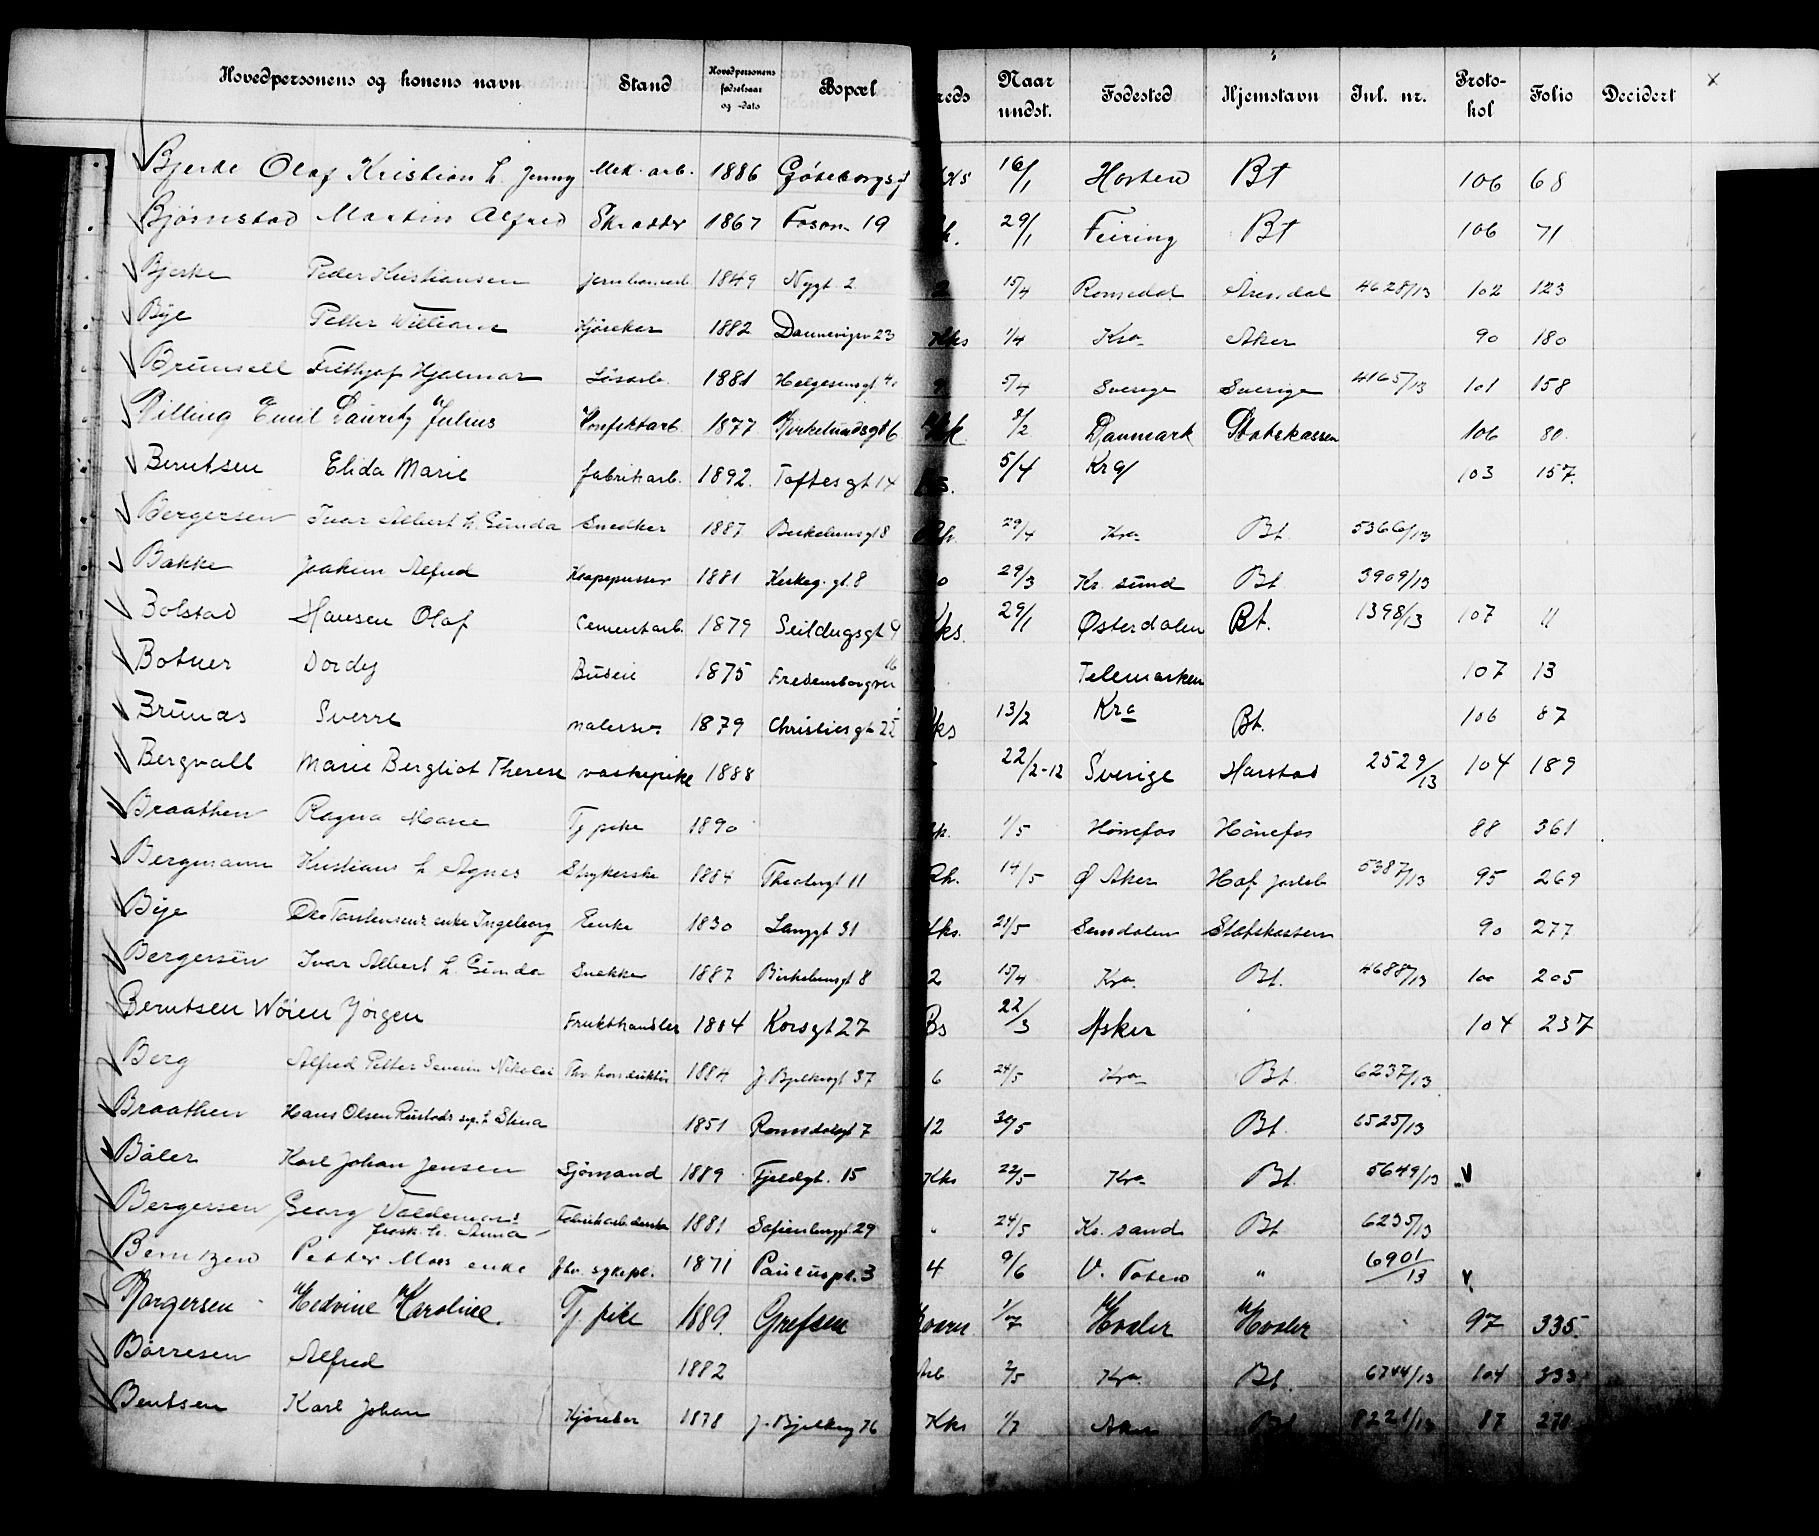 Hovedpersonens og konens navn Stand Hovedpersonens fødselsaar og -dato Bopæl reds Naar undst. Fødested Hjemstavn Inl. nr. Protokol Folio Decidert
Bjerke Olaf Kristian h. Jenny Mek. arb. 1886 Gøteborgsg 16/1 Horten Bt 106 68
Bjørnstad Martin Alfred Skrædder 1867 Fossv. 19 29/1 Feiring Bt 106 71
Bjerke Peder Kristiansen 1849 Nygt 2 2 15/4 Romsdal Arendal 4628/13 102 123
Bye Petter William Kjøreker 1882 Dannevigsv 23 Kks 1/4 Kra Aker 90 180
Brunsell Frithjof Hjalmar Løsarb. 1881 Helgesensgt 9 5/4 Sverige Sverige 4165/13 101 158
Villing Emil Lauritz Julius Konfektarb. 1877 Birkelundsgt 6 8/2 Danmark Statskassen 106 80
Berntsen Elida Marie fabrikarb. 1892. Toftesgt 14 5/4 Kra 103 157.
Bergersen Ivar Albert h. Gunda Snedker 1887 Birkelunsgt 8 29/4 Kra Bt. 5366/13
Bakke Joakim Alfred 1881 Kirkeg. gt. 8 29/3 Kr. sund Bt. 3909/13
Bolstad Hansen Olaf Cementarb. 1879 Seildugsgt 9 ks. 29/1 Østerdalen Bt. 1398/13 107 11
Botner Dordy Budeie 1875 Fredensborgvei 16 Telemarken 107 13
Brunæs Sverre malersv. 1879 Christiesgt 22 ks 13/2 Kra Bt. 106 87
Bergvall Marie Bergliot Therese vaskepike 1888 22/2-12 Sverige Harstad 2529/13 104 189
Braathen Ragna Marie Tj pike 1890 1/5 Hønefos Hønefos 88 361
Bergmann Kristiane h Agnes Strykerske 1884 Theresgt 11 14/5 Ø Aker Hof Jarlsb 5387/13 95 269
Bye Ole Torstensens enke Ingeborg Enke 1830 Langgt 31 ks. 21/5 Sundalen Statskassen 90 277
Bergersen Ivar Albert h. Gunda Snekker 1887 Birkelunsgt 8 2 15/4 Kra. Bt. 4688/13 100 205
Berntsen Wøien Jørgen Frukthandler 1884 Korsgt 27 Bs 22/3 Asker 104 237
Berg Alfred Petter Severin Nikolai fhv konduktør 1884 J. Bjelkesgt 37 6 24/5 Kra Bt. 6237/13
Braathen Hans Olsen Rustads sep. h Stina 1851 Romsdalsgt 7 12 30/5 Bt. 6525/13
Bøler Karl Johan Jensen Sjømand 1889 Fjeldgt. 15 Kks 22/5 Kra Bt. 5649/13
Bergersen Georg Valdemars Fabrikarbeider 1881 Sofienbergt. 29 " 24/5 Kr. sand Bt 6235/13
frask. h. Anna
Berntzen Petter Moes enke fhv. sykepl. 1871 Pauluspl. 3 4 9/6 V. Toten " 6901/13
Borgersen Hedvine Karoline. Tj pike 1889. Grefsen 1/7 Hvaler Hvaler 97 335.
Børresen Alfred 1882 2/5 Kra Bt. 6744/13 104 333
Bentsen Karl Johan Kjøreker 1878 J. Bjelkesg 76 Kks 1/7 Aker Bt 8221/13 87 270